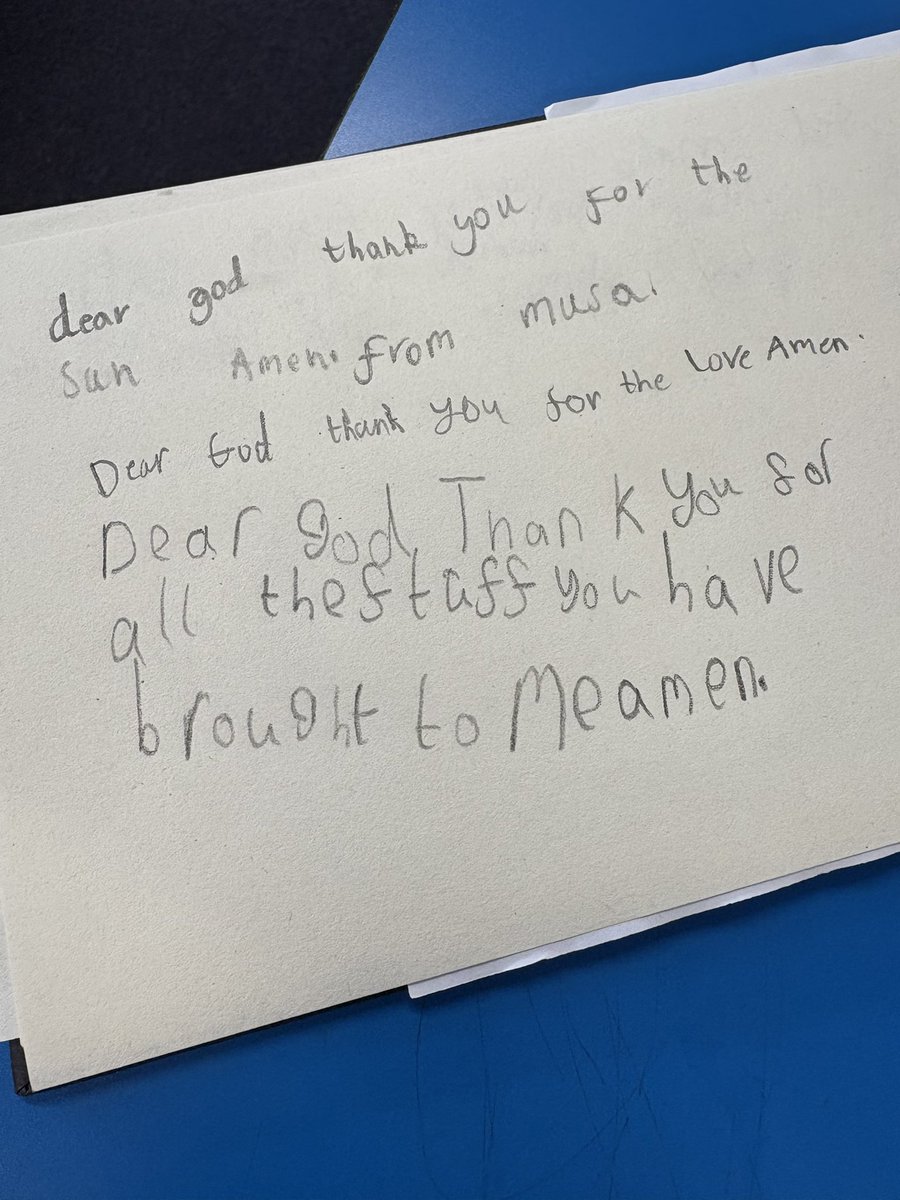 dear god thank you for the
Sun Amen. from musa.
Dear God thank you for the Love Amen.
Dear god Thank you for
all the staff you have
brought to Me amen.